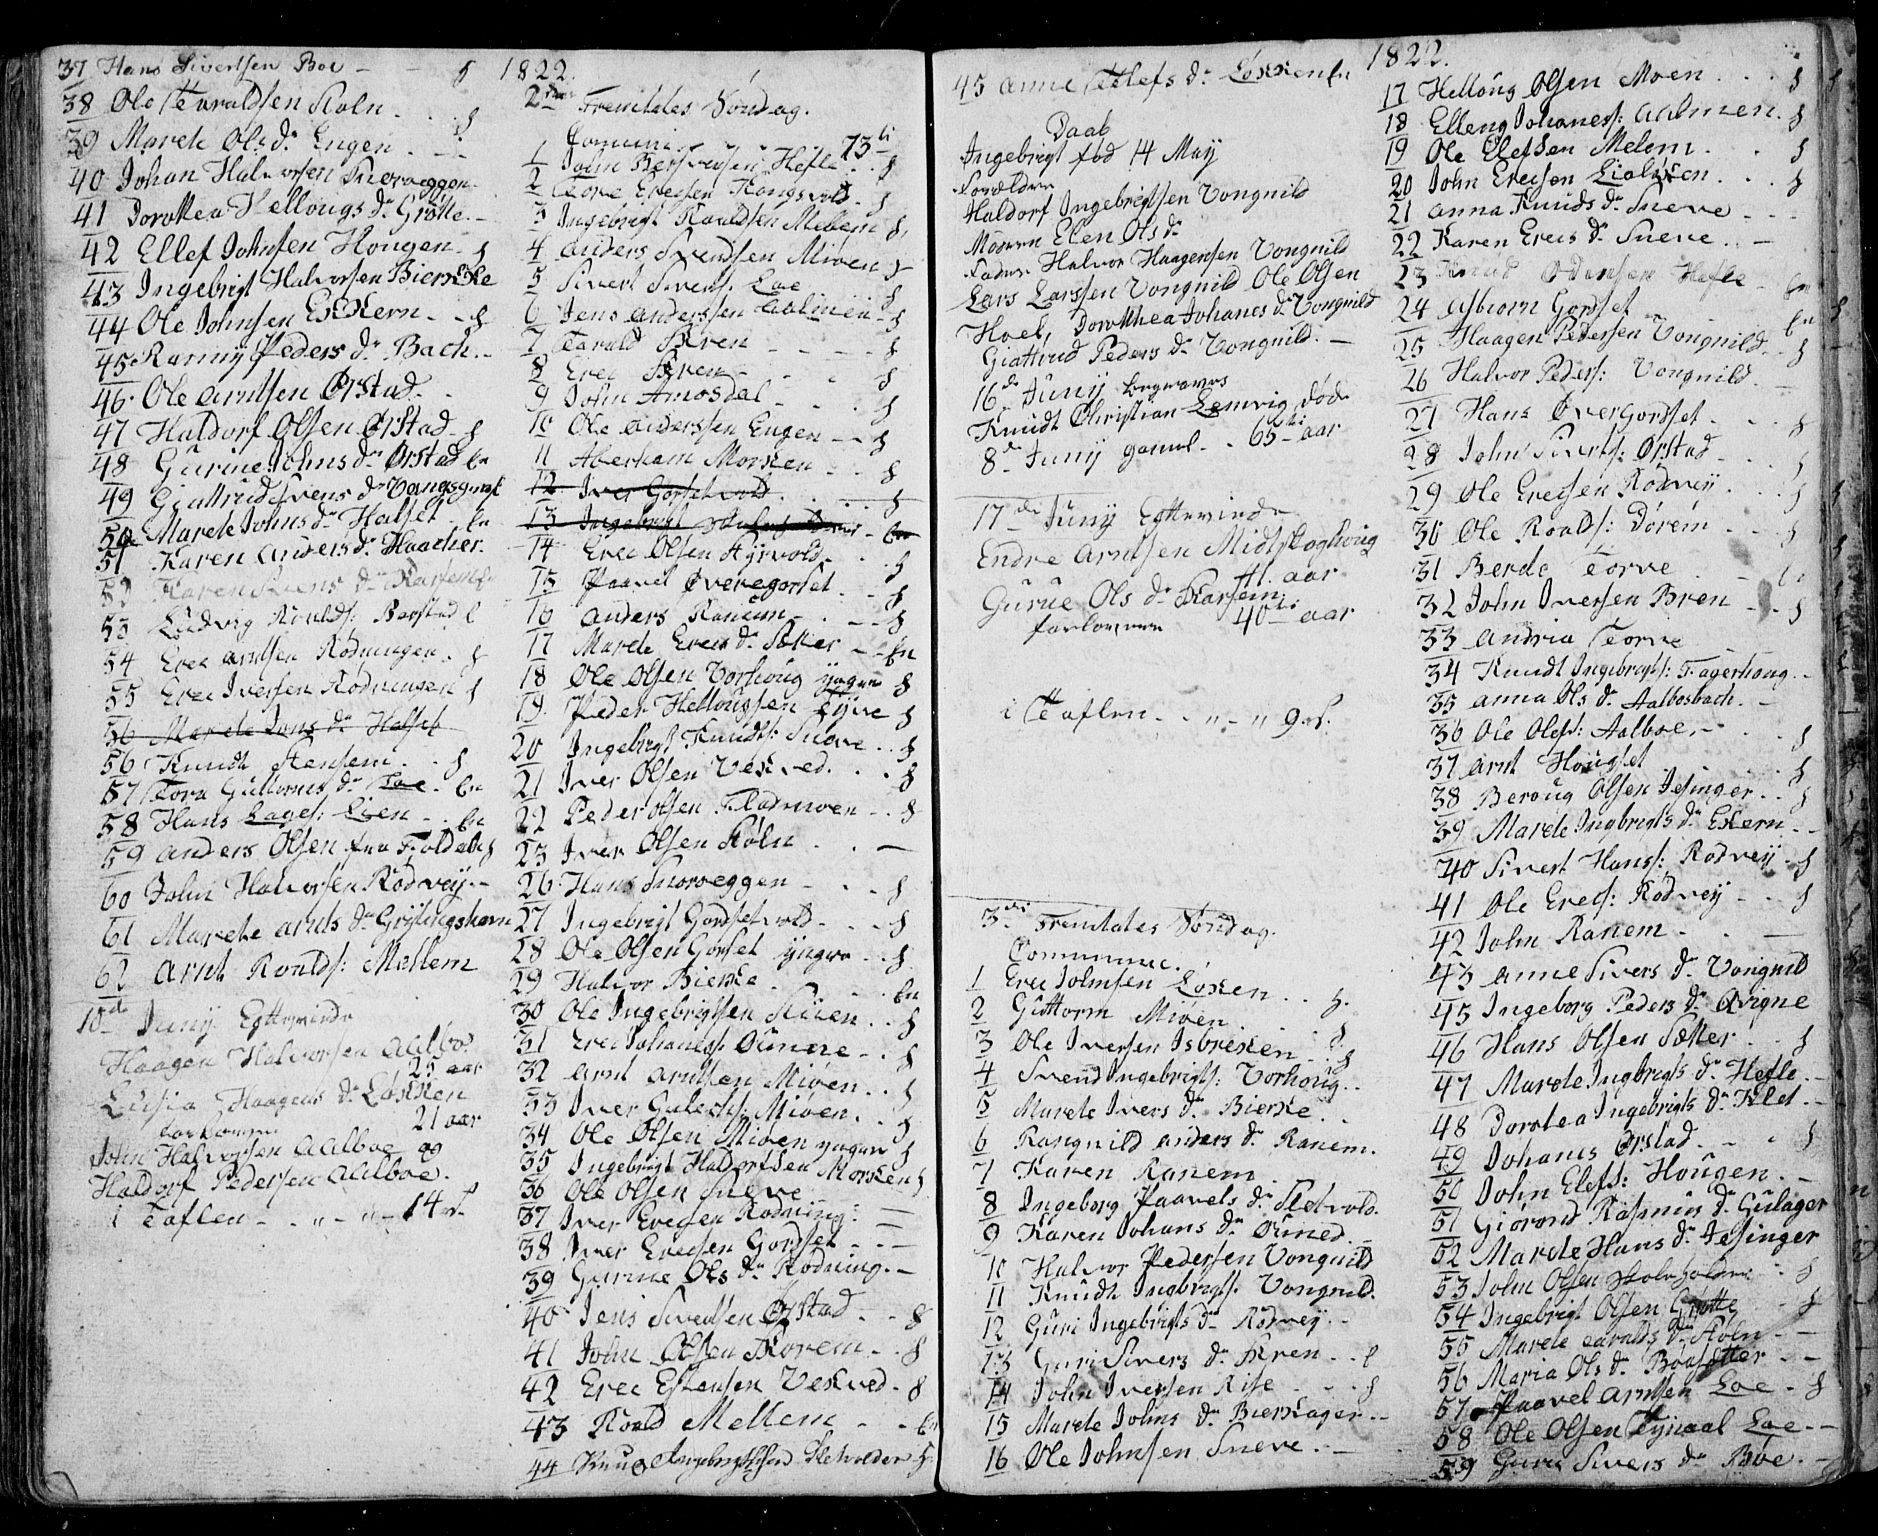 37 Hans Sivertsen Boe - - f
38 Ole Taraldsen Køln - . . f
39 Marete Ols dr Engen . - -
40 Johan Halvorsen Snoroeggen
41 Dorothea Hellougs dr Grøtte. -
42 Ellef Johnsen Hougen - f
43 Ingebrigt Halvorsen Bierkke
44 Ole Johnsen Ekkern . - f
45 Ranny Peders dr Bach. -
46 Ole Arntsen Ørstad - .
47 Haldorf Olsen Ørstad - f
48 Gurine Johns dr Ørstad
49 Giattrud Svens dr
50 Marete Johns dr Halset -
51 Karen Anders dr Haacker.
52 Karen Svens dr
53 Ludvig Roalds:
54 Erec Arntsen Rodningen . f
55 Erec Iversen Rodningen f
56 Marete Jons dr Halset
56 Knudt Stensem . . f
57 Tora Guttorms dr Loe -
58 Hans Lages: Lien - .
59 Anders Olsen fra Foldal f
60 John Halvorsen Rodvey. -
61 Marete Arnts dr
62 Arnt Roalds: Mellem
10de Juny Egteviede
Haagen Halvorsen Aalbo
25 aar
Lusia Haagens dr Løkken
21 aar
forlovere
John Halvorsen Aalboe og
Haldorf Pedersen Aalboe.
i Taflen - . „ - „ - 14 s.
1822.
2den Trenitates Søndag.
Comuni. . . . . 73ti
1 John Bersvensen Hefle . . f
2 Tore Erecsen Kongsvold. f
3 Ingebrigt Roaldsen Mellem f
4 Anders Svendsen Mioen f
5 Sivert Sivers: Loe . f
6 Jens Anderssen Aalmen - f
7 Tarald Bren - - - - f
8 Erec Bren - - - f
9 John Amosdal - - - f
10 Ole Anderssen Engen - - f
11 Aberham Morken - - . f
12 Iver Gorsetvold . . . f
13 Ingebrigt
14 Erec Olsen Hyrvold - . . f
15 Paavel Øveregorset - - f
16 Anders Ranem - . - - f
17 Marete Erecs dr Sætter - -
18 Ole Olsen Vorhoug yngre f
19 Peder Hellougsen f
20 Ingebrigt Knudts: Sneve . . f
21 Iver Olsen Vekved . . . f
22 Peder Olsen Fladmoen - - f
23 Iver Olsen Køln . . -
26 Hans Snoroeggen - . . f
27 Ingebrigt Gordsetvold - . . f
28 Ole Olsen Gorset yngre . . f
29 Halvor Bierke - . . .
30 Ole Ingebrigtsen Stuen . . f
31 Erec Johaness: Dunne - . f
32 Arnt Arntsen Mioen . . f
33 Iver Mioen . . f
34 Ole Olsen Mioen yngre f
35 Ingebrigt Haldorfsen Morken f
36 Ole Olsen Sneve - - -
37 Iver Erecsen Rodning: -
38 Iver Erecsen Gordset - . -
39 Gurine Ols dr Rodning. -
40 Jens Sivertsen Ørstad - . f
41 John Olsen Dorem - . f
42 Erec Estensen Vekved - f
43 Roald Mellem - -
44 Knud Ingebrigtsen f
45 Anne Ellefs dr Løkken
Daab
Ingebrigt fød 14 May
Forældre
Haldorf Ingebrigtsen Vongnild
Moeren Elen Ols dr
Fadere Halvor Haagensen Vongnild
Lars Larssen Vongnild Ole Olsen
Hoel, Dorothea Johanes dr Vongnild
Giattrud Peders dr Vongnild. -
16de Juny begraves
Knudt Christian Lemvig, døde
8de Juny gaml. . 65ti aar
17de Juny Egteviede
Endre Arntsen Midtskoghoug
41. aar
Gurue Ols dr Storsem
forlovere 40ti aar
i Taflen . . „ - „ 9 s.
3die Trenitates Søndag.
Communic.
1 Erec Johnsen Løken . . f.
2 Guttorm Mioen . . . f
3 Ole Iversen Isbreken - . f
4 Svend Ingebrigts: Vorhoug . .
5 Marete Ivers dr Bierke . -
6 Rangnild Anders dr Ranem.
7 Karen Ranem - -
8 Ingeborg Paavels dr Sletvold.
9 Karen Johans dr Duned. -
10 Halvor Pedersen Vongnild
11 Knudt Ingbrigts: Vongnild.
12 Guri Ingebrigts dr Rodvey . -
13 Guri Sivers dr Bren - . f
14 John Iversen Rise - . . f
15 Marete Johns dr Bierkager. -
16 Ole Johnsen Sneve. -
1822.
17 Helloug Olsen Moen . . . f
18 Elleng Johaness: Aalmen . f
19 Ole Elefsen Melem . . . f
20 John Erecsen Lioløken . . . f
21 Anna Knuds dr Sneve - - -
22 Karen Erecs dr Sneve . . -
23 Knud Odensen Hefle -
24 Asbiørn Gorset - - - -
25 Haagen Pedersen Vongnild - f
26 Halvor Peders: Vongnild. -
27 Hans Øvergordset - . . f
28 John Siverts: Ørstad - . . f
29 Ole Erecsen Rodvey . . . f
30 Ole Roalds: Dorem - - . f
31 Berte Torve . . -
32 John Iversen Bren - . f
33 Andria Torve -
34 Knudt Ingebrigts: Fagerhoug. -
35 Anna Ols dr Aalbosbach. -
36 Ole Olefs: Aalboe. - - - f
37 Arnt Hougset - - - - f
38 Beroug Olsen Jesinger . . f
39 Marete Ingbrigts dr Ekern . -
40 Sivert Hans: Rodvey - f
41 Ole Erecs: Rodvey - - - f
42 John Ranem - . -
43 Anne Sivers dr Vongnild
45 Ingeborg Peders dr Qvigne
46 Hans Olsen Sætter - . f
47 Marete Ingbrigts dr Hefle. -
48 Dorotea Ingebrigts dr Klet - -
49 Johanes Ørstad . - . f
50 John Elefs: Hougen . -
51 Giørond Rasmus dr Gulager
52 Marete Hans dr Jesinger
53 John Olsen . f
54 Ingebrigt Olsen Grøtte - f
55 Marete Taralds dr Køln - -
56 Maria Ols dr Boesætter - -
57 Paavel Arntsen Loe - f
58 Ole Olsen Loe - -
59 Guru Sivers dr Boe. -